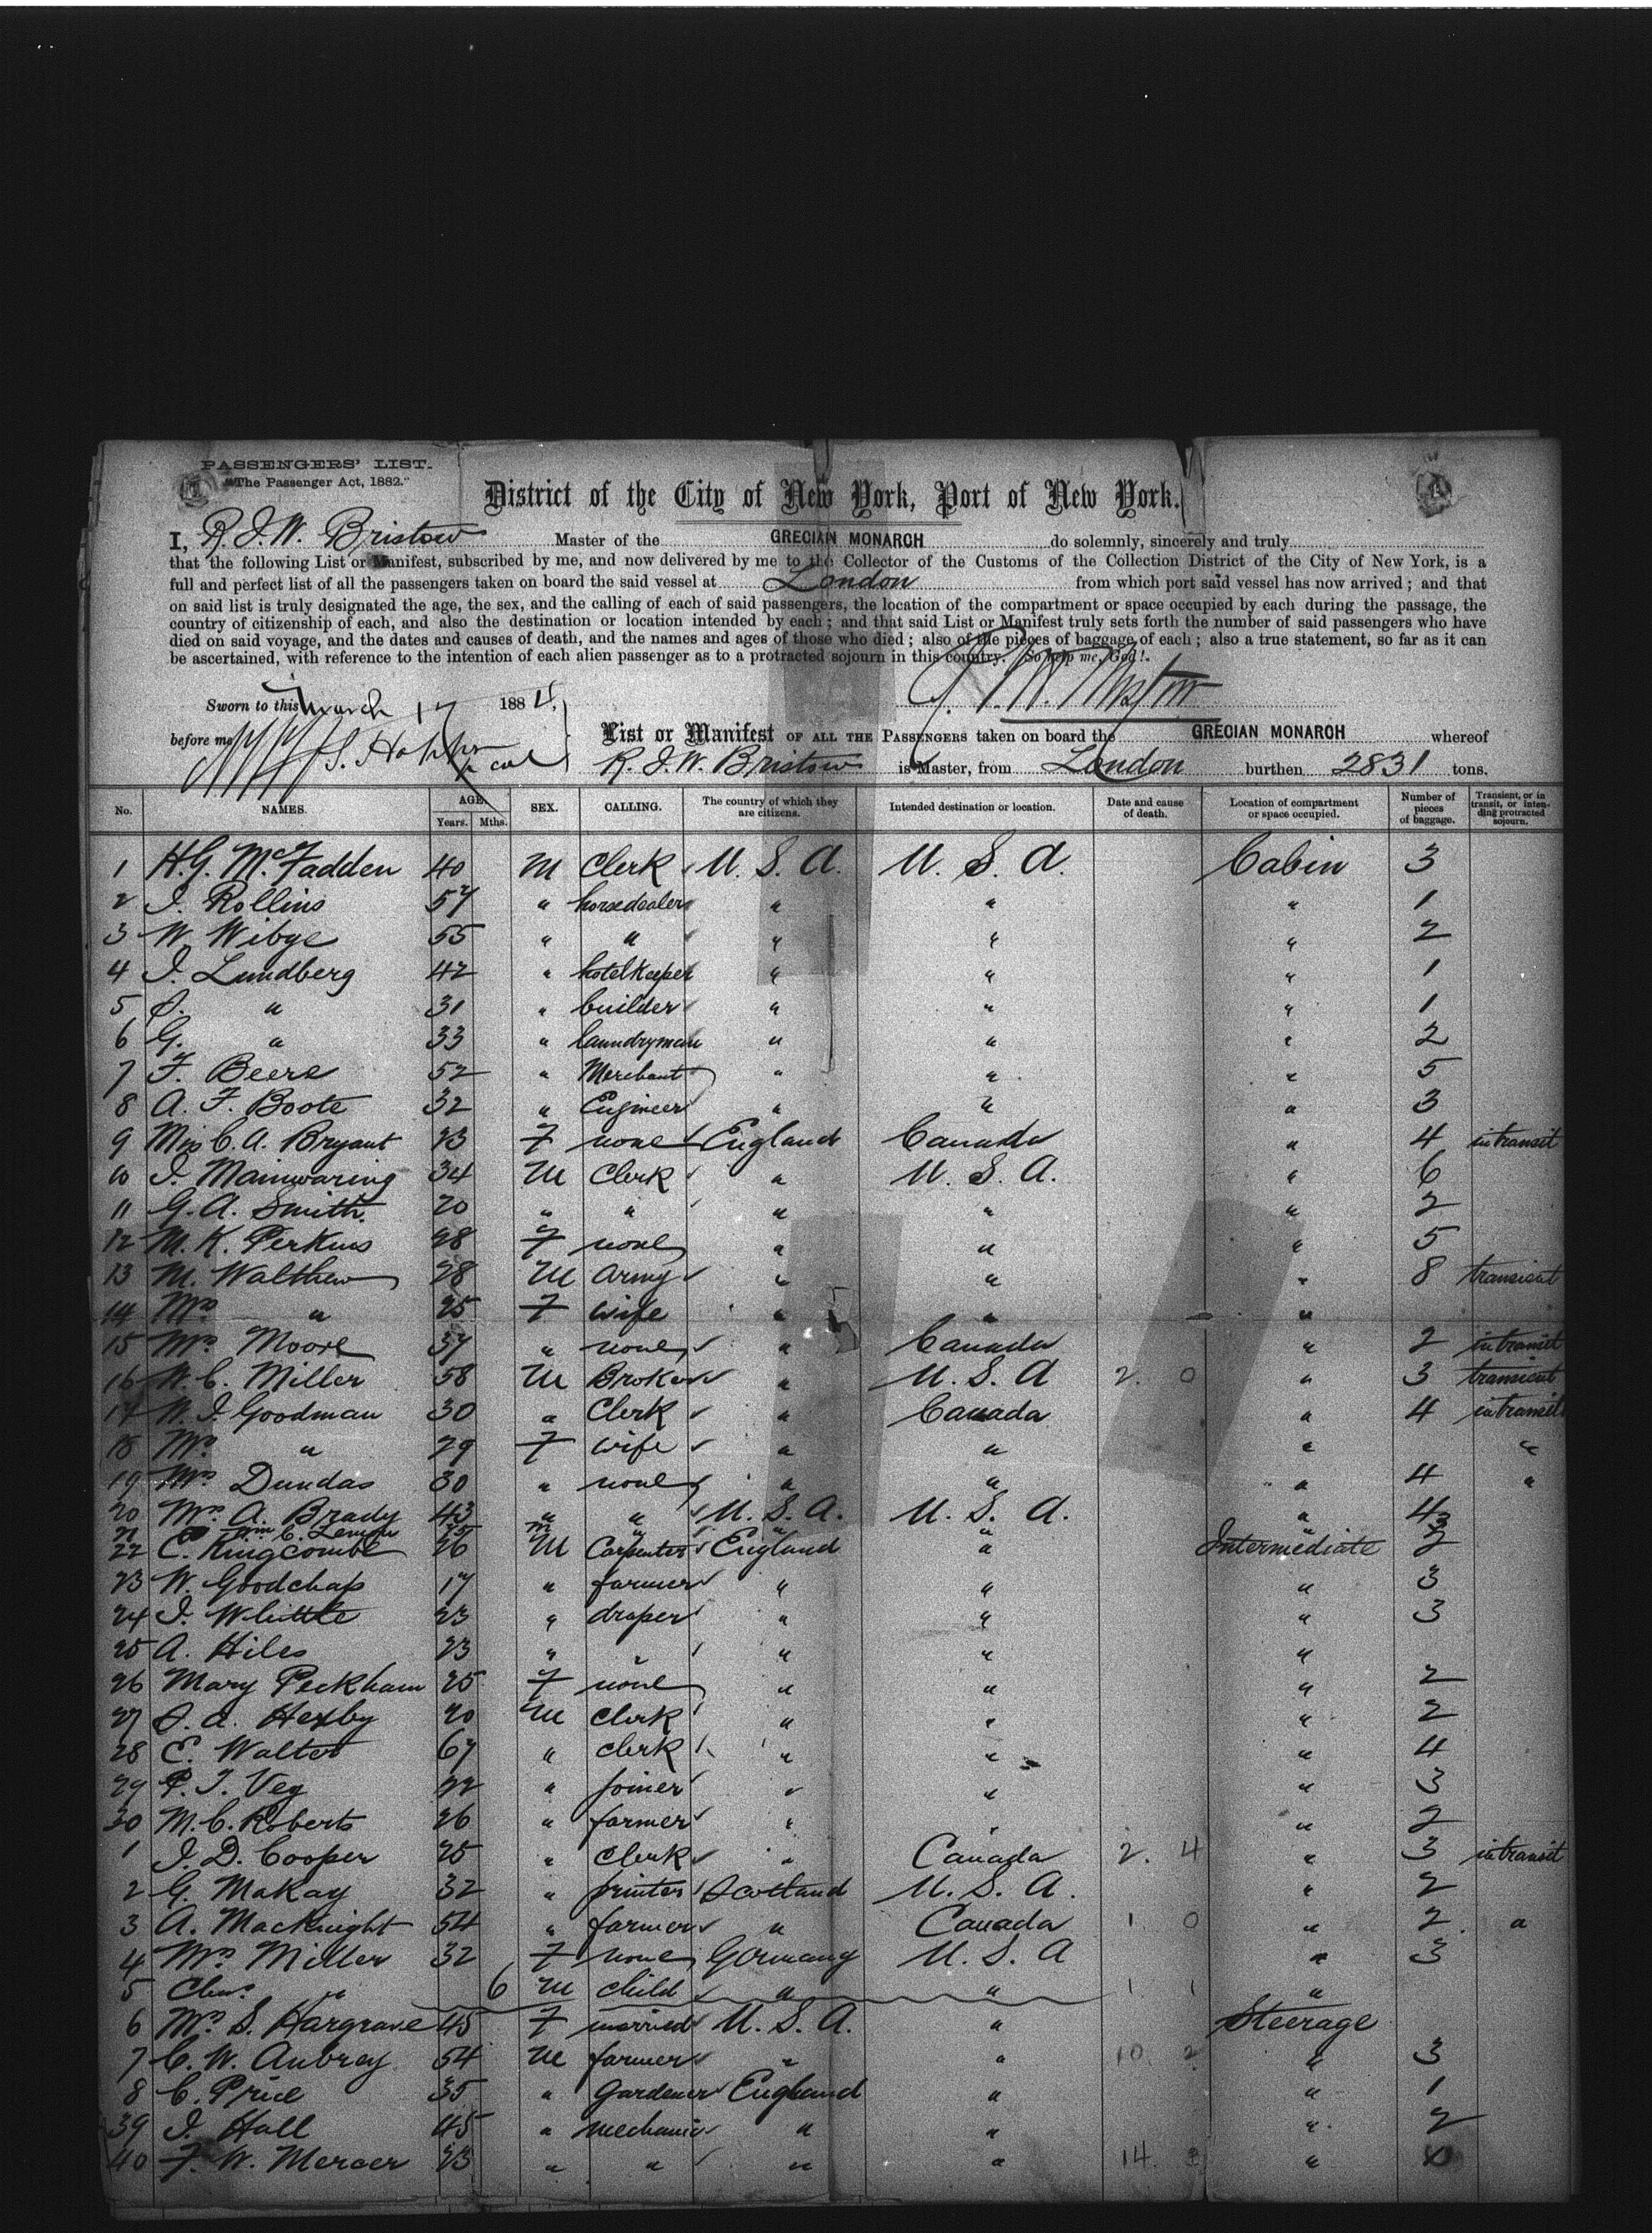 PASSENGERS' LIST.
"The Passenger Act, 1882."
District of the City of New York, Port of New York.
I, R. J. W. Bristow Master of the GRECIAN MONARCH do solemnly, sincerely and truly
that the following List or Manifest, subscribed by me, and now delivered by me to the Collector of the Customs of the Collection District of the City of New York, is a
full and perfect list of all the passengers taken on board the said vessel at London from which port said vessel has now arrived; and that
on said list is truly designated the age, the sex, and the calling of each of said passengers, the location of the compartment or space occupied by each during the passage, the
country of citizenship of each, and also the destination or location intended by each; and that said List or Manifest truly sets forth the number of said passengers who have
died on said voyage, and the dates and causes of death, and the names and ages of those who died; also of the pieces of baggage of each; also a true statement, so far as it can
be ascertained, with reference to the intention of each alien passenger as to a protracted sojourn in this country. So help me, God!.
Sworn to this March 17 1884,
before me
List or Manifest OF ALL THE PASSENGERS taken on board the GRECIAN MONARCH whereof
R. J. W. Bristow is Master, from London burthen 2831 tons.
No. NAMES. AGE. Years. Mths. SEX. CALLING. The country of which they are citizens. Intended destination or location. Date and cause of death. Location of compartment or space occupied. Number of pieces of baggage. Transient, or in transit, or intending protracted sojourn.
1 H. G. McFadden 40 M Clerk U. S. A. U. S. A. Cabin 3
2 J. Rollins 57 " horsedealer " " " 1
3 W. Wibye 55 " " " " " 2
4 J. Lundberg 42 " hotelkeeper " " " 1
5 " 31 " builder " " " 1
6 G. " 33 " laundryman " " " 2
7 F. Beers 52 " Merchant " " " 5
8 A. F. Boote 32 " Engineer " " " 3
9 Miss C. A. Bryant 23 F none England Canada " 4 in transit
10 J. Mainwaring 34 M Clerk " U. S. A. " 6
11 G. A. Smith. 20 " " " " " 2
12 M. K. Perkins 28 F none " " " 5
13 M. Walthew 28 M Army " " " 8 transient
14 Mrs " 25 F wife " " "
15 Mrs Moore 37 " none " Canada " 2 in transit
16 W. C. Miller 58 M Broker " U. S. A 2. 0 " 3 transient
17 W. J. Goodman 30 " Clerk " Canada " 4 in transit
18 Mrs " 29 F wife " " " "
19 Mrs Dundas 30 " none " " " 4 "
20 Mrs A. Brady 43 " " U. S. A. U. S. A. " 4
21 Wm C. 25 m " " " " 3
22 C. Kingcombe 26 M Carpenter England " Intermediate 2
23 W. Goodchap 17 " farmer " " " 3
24 J. Whittle 23 " draper " " " 3
25 A. Hiles 23 " " " " "
26 Mary Peckham 25 F none " " " 2
27 20 M Clerk " " " 2
28 E. Walter 67 " clerk " " " 4
29 P. J. Vey 22 " joiner " " " 3
30 M. C. Roberts 26 " farmer " " " 2
1 J. D. Cooper 25 " Clerk " Canada 2. 4 " 3 in transit
2 G. Makay 32 " printer Scotland U. S. A. " 2
3 A. MacKnight 54 " farmer " Canada 1 0 " 2 "
4 Mrs Miller 32 F none Germany U. S. A " 3
5 Chas. " 6 M child " " 1 1 "
6 Mrs S. Hargrave 45 F married U. S. A. " Steerage
7 C. W. Aubrey 54 M farmer " " 10. 2 " 3
8 C. Price 35 " Gardener England " " 1
39 J. Hall 45 " mechanic " " " 2
40 F. W. Mercer 23 " " " " 14. "